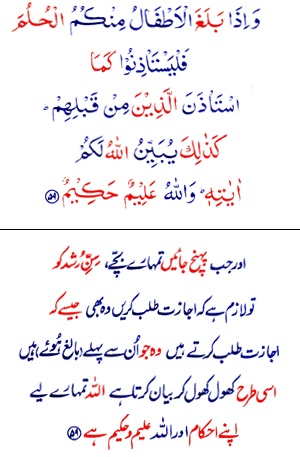 وَاِذَا بَلَغَ الْاَطْفَالُ مِنْكُمُ الْحُلُمَ
فَلْيَسْتَاْذِنُوْا كَمَا
اسْتَاْذَنَ الَّذِيْنَ مِنْ قَبْلِهِمْ ؕ
كَذٰلِكَ يُبَيِّنُ اللّٰهُ لَكُمْ
اٰيٰتِهٖ ؕ وَاللّٰهُ عَلِيْمٌ حَكِيْمٌ ﴿۵۹﴾
اور جب پہنچ جائیں تمہارے بچے، سِنِّ رُشد کو
تو لازم ہے کہ اجازت طلب کریں وہ بھی جیسے کہ
اجازت طلب کرتے ہیں وہ جو اُن سے پہلے (بالغ ہُوئے) ہیں
اسی طرح کھول کھول کر بیان کرتا ہے اللہ تمہارے لیے
اپنے احکام اور اللہ علیم و حکیم ہے ﴿۵۹﴾